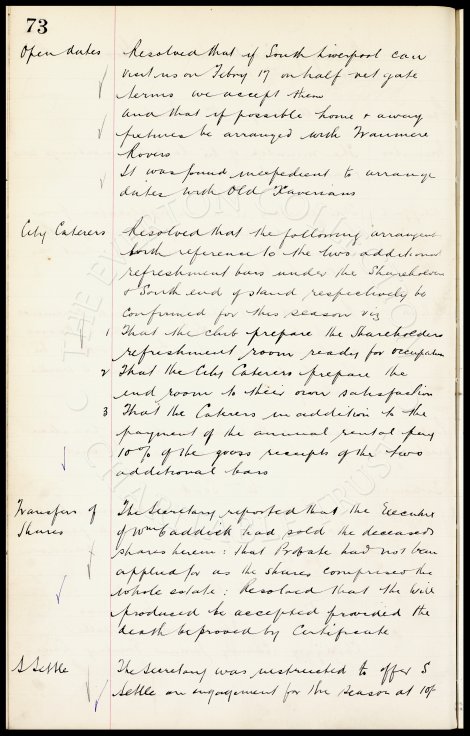 73
Open dates Resolved that if South Liverpool can
visit us on Febry 17 on half net gate
terms we accept them
and that if possible home & away
fixtures be arranged with Tranmere
Rovers
It was found inexpedient to arrange
dates with Old Xaverians
City Caterers Resolved that the following arrangent
with reference to the two additional
refreshment bars under the Shareholders
& South end of stand respectively be
confirmed for this season viz
1 That the club prepare the Shareholders
refreshment room ready for occupation
2 That the City Caterers prepare the
end room to their own satisfaction
3 That the Caterers in addition to the
payment of the annual rental pay
10% of the gross receipts of the two
additional bars
Transfers of The Secretary reported that the Executor
Shares of Wm Caddick had sold the deceased
shares herein: that Probate had not been
applied for as the shares comprised the
whole estate: Resolved that the Will
produced be accepted provided the
death be proved by Certificate
S Settle The Secretary was instructed to offer S
Settle an engagement for the season at 10/-
THE EVERTON COLLECTION
CHARITABLE TRUST